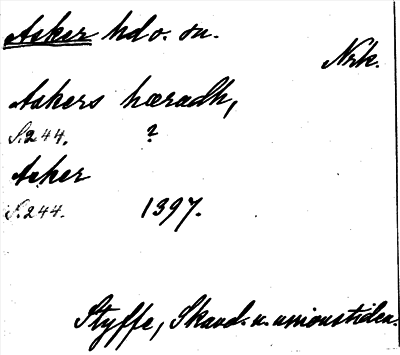 Asker hd o. sn.
Nrk.
Askers hæradh,
S. 244. ?
Asker
S. 244. 1397.
Styffe, Skand. u. unionstiden.